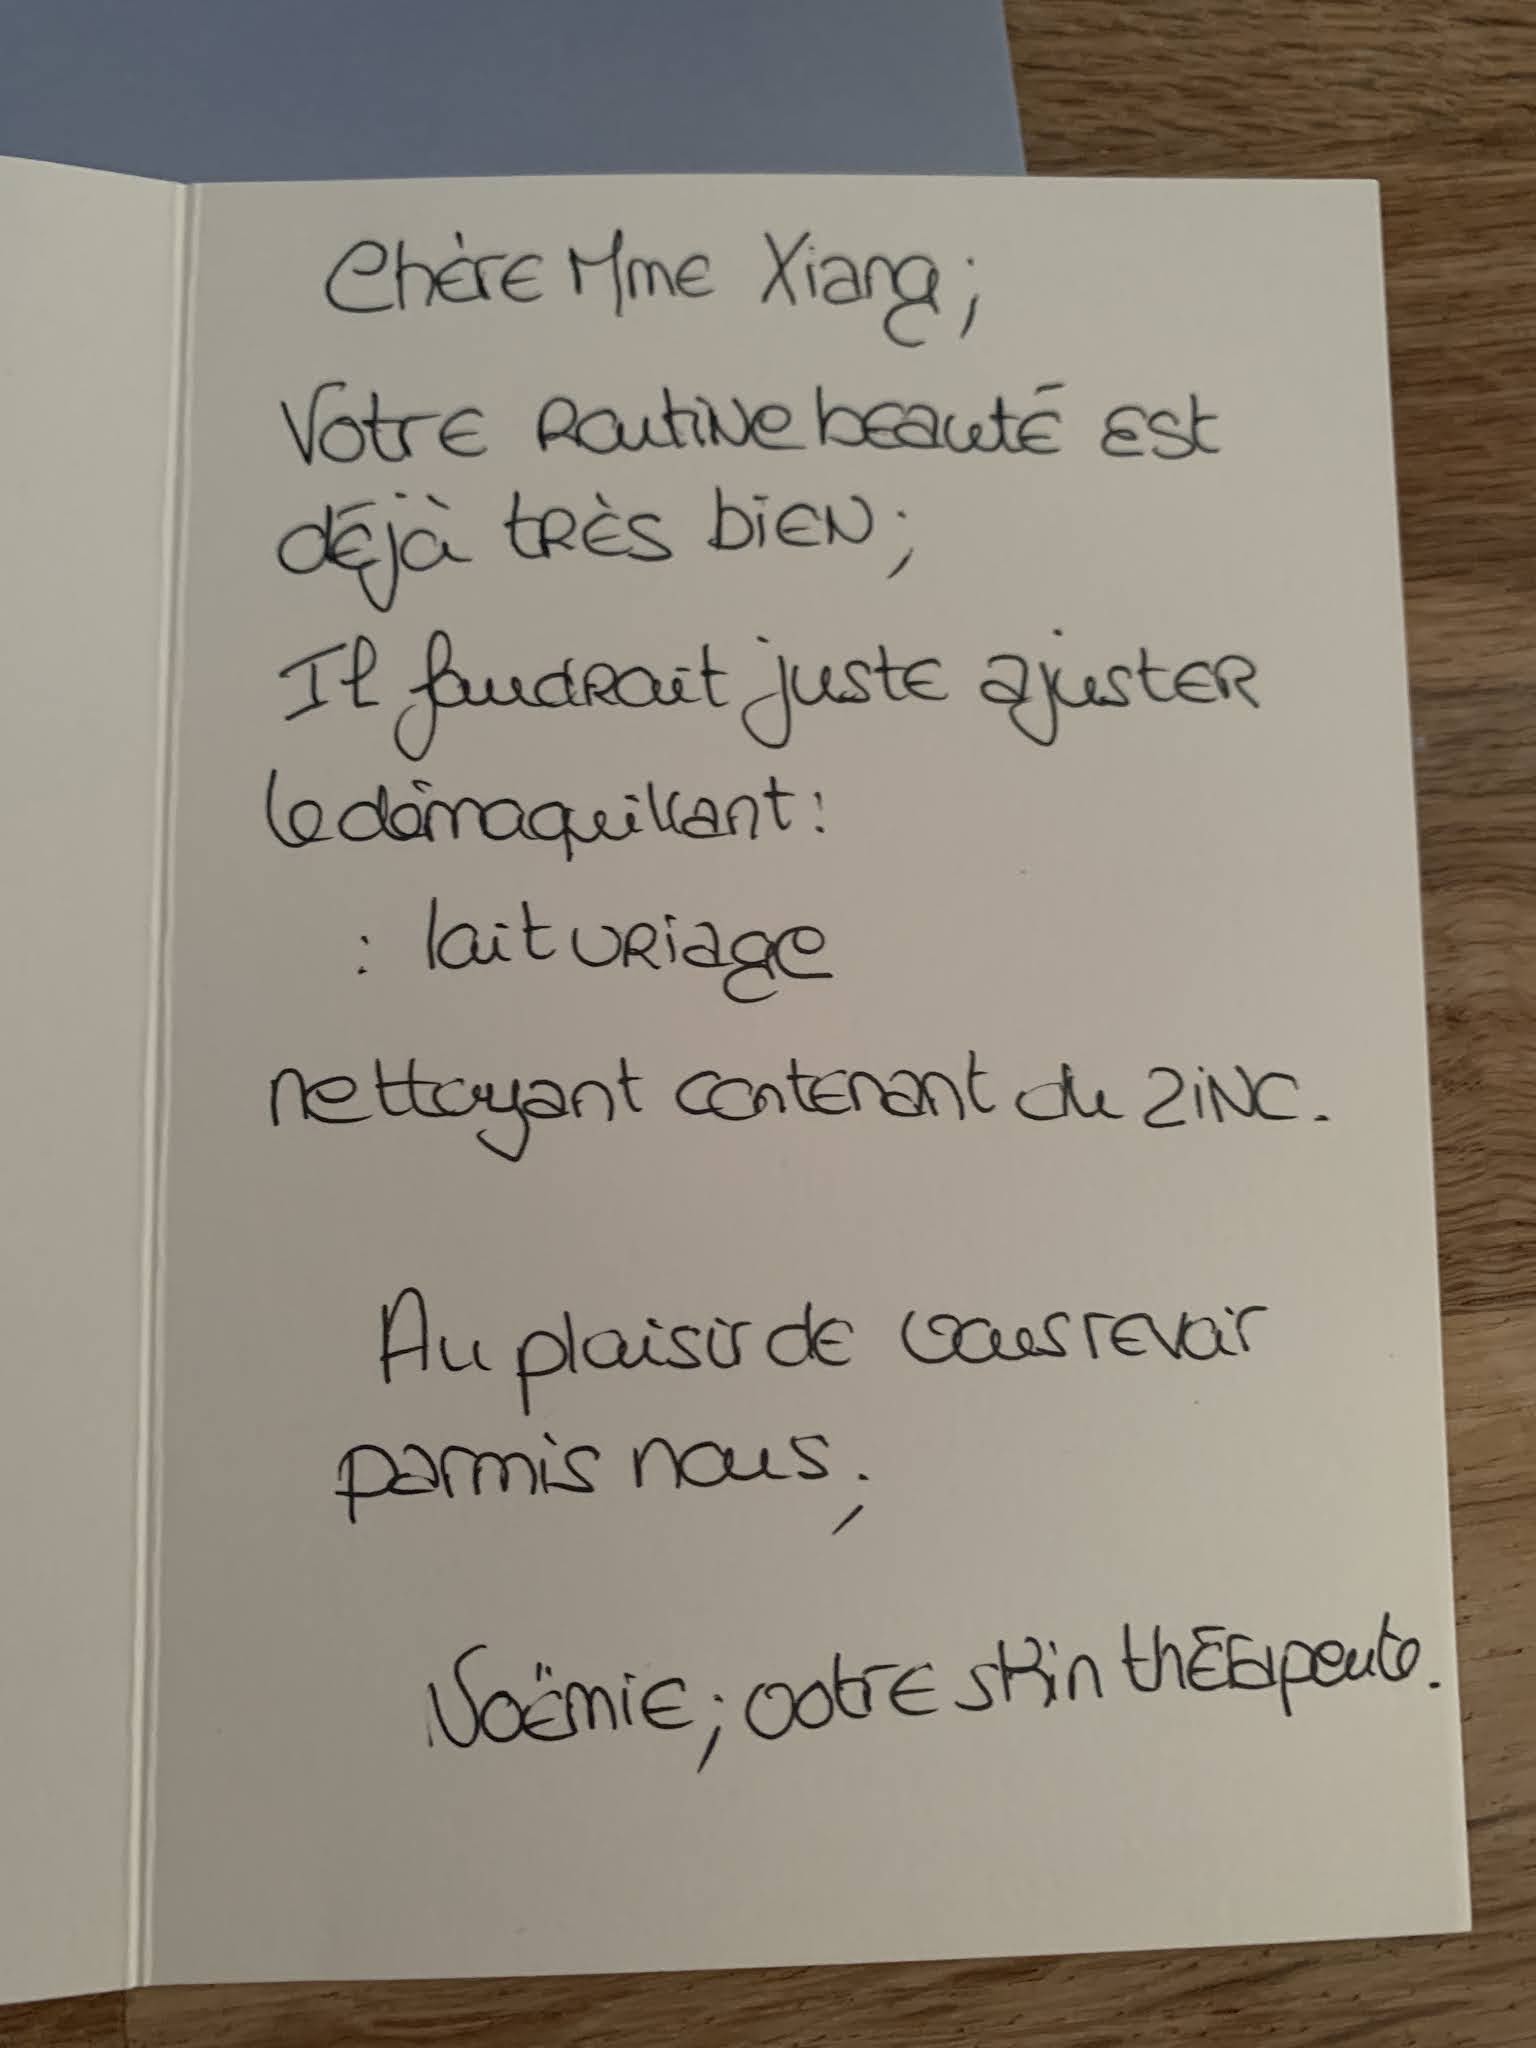 Chère Mme Xiang;
Votre routine beauté est
déjà très bien;
Il faudrait juste ajuster
le démaquillant:
: lait uriage
nettoyant contenant du zinc.
Au plaisir de vous revoir
parmis nous;
Noëmie; votre skin thérapeute.